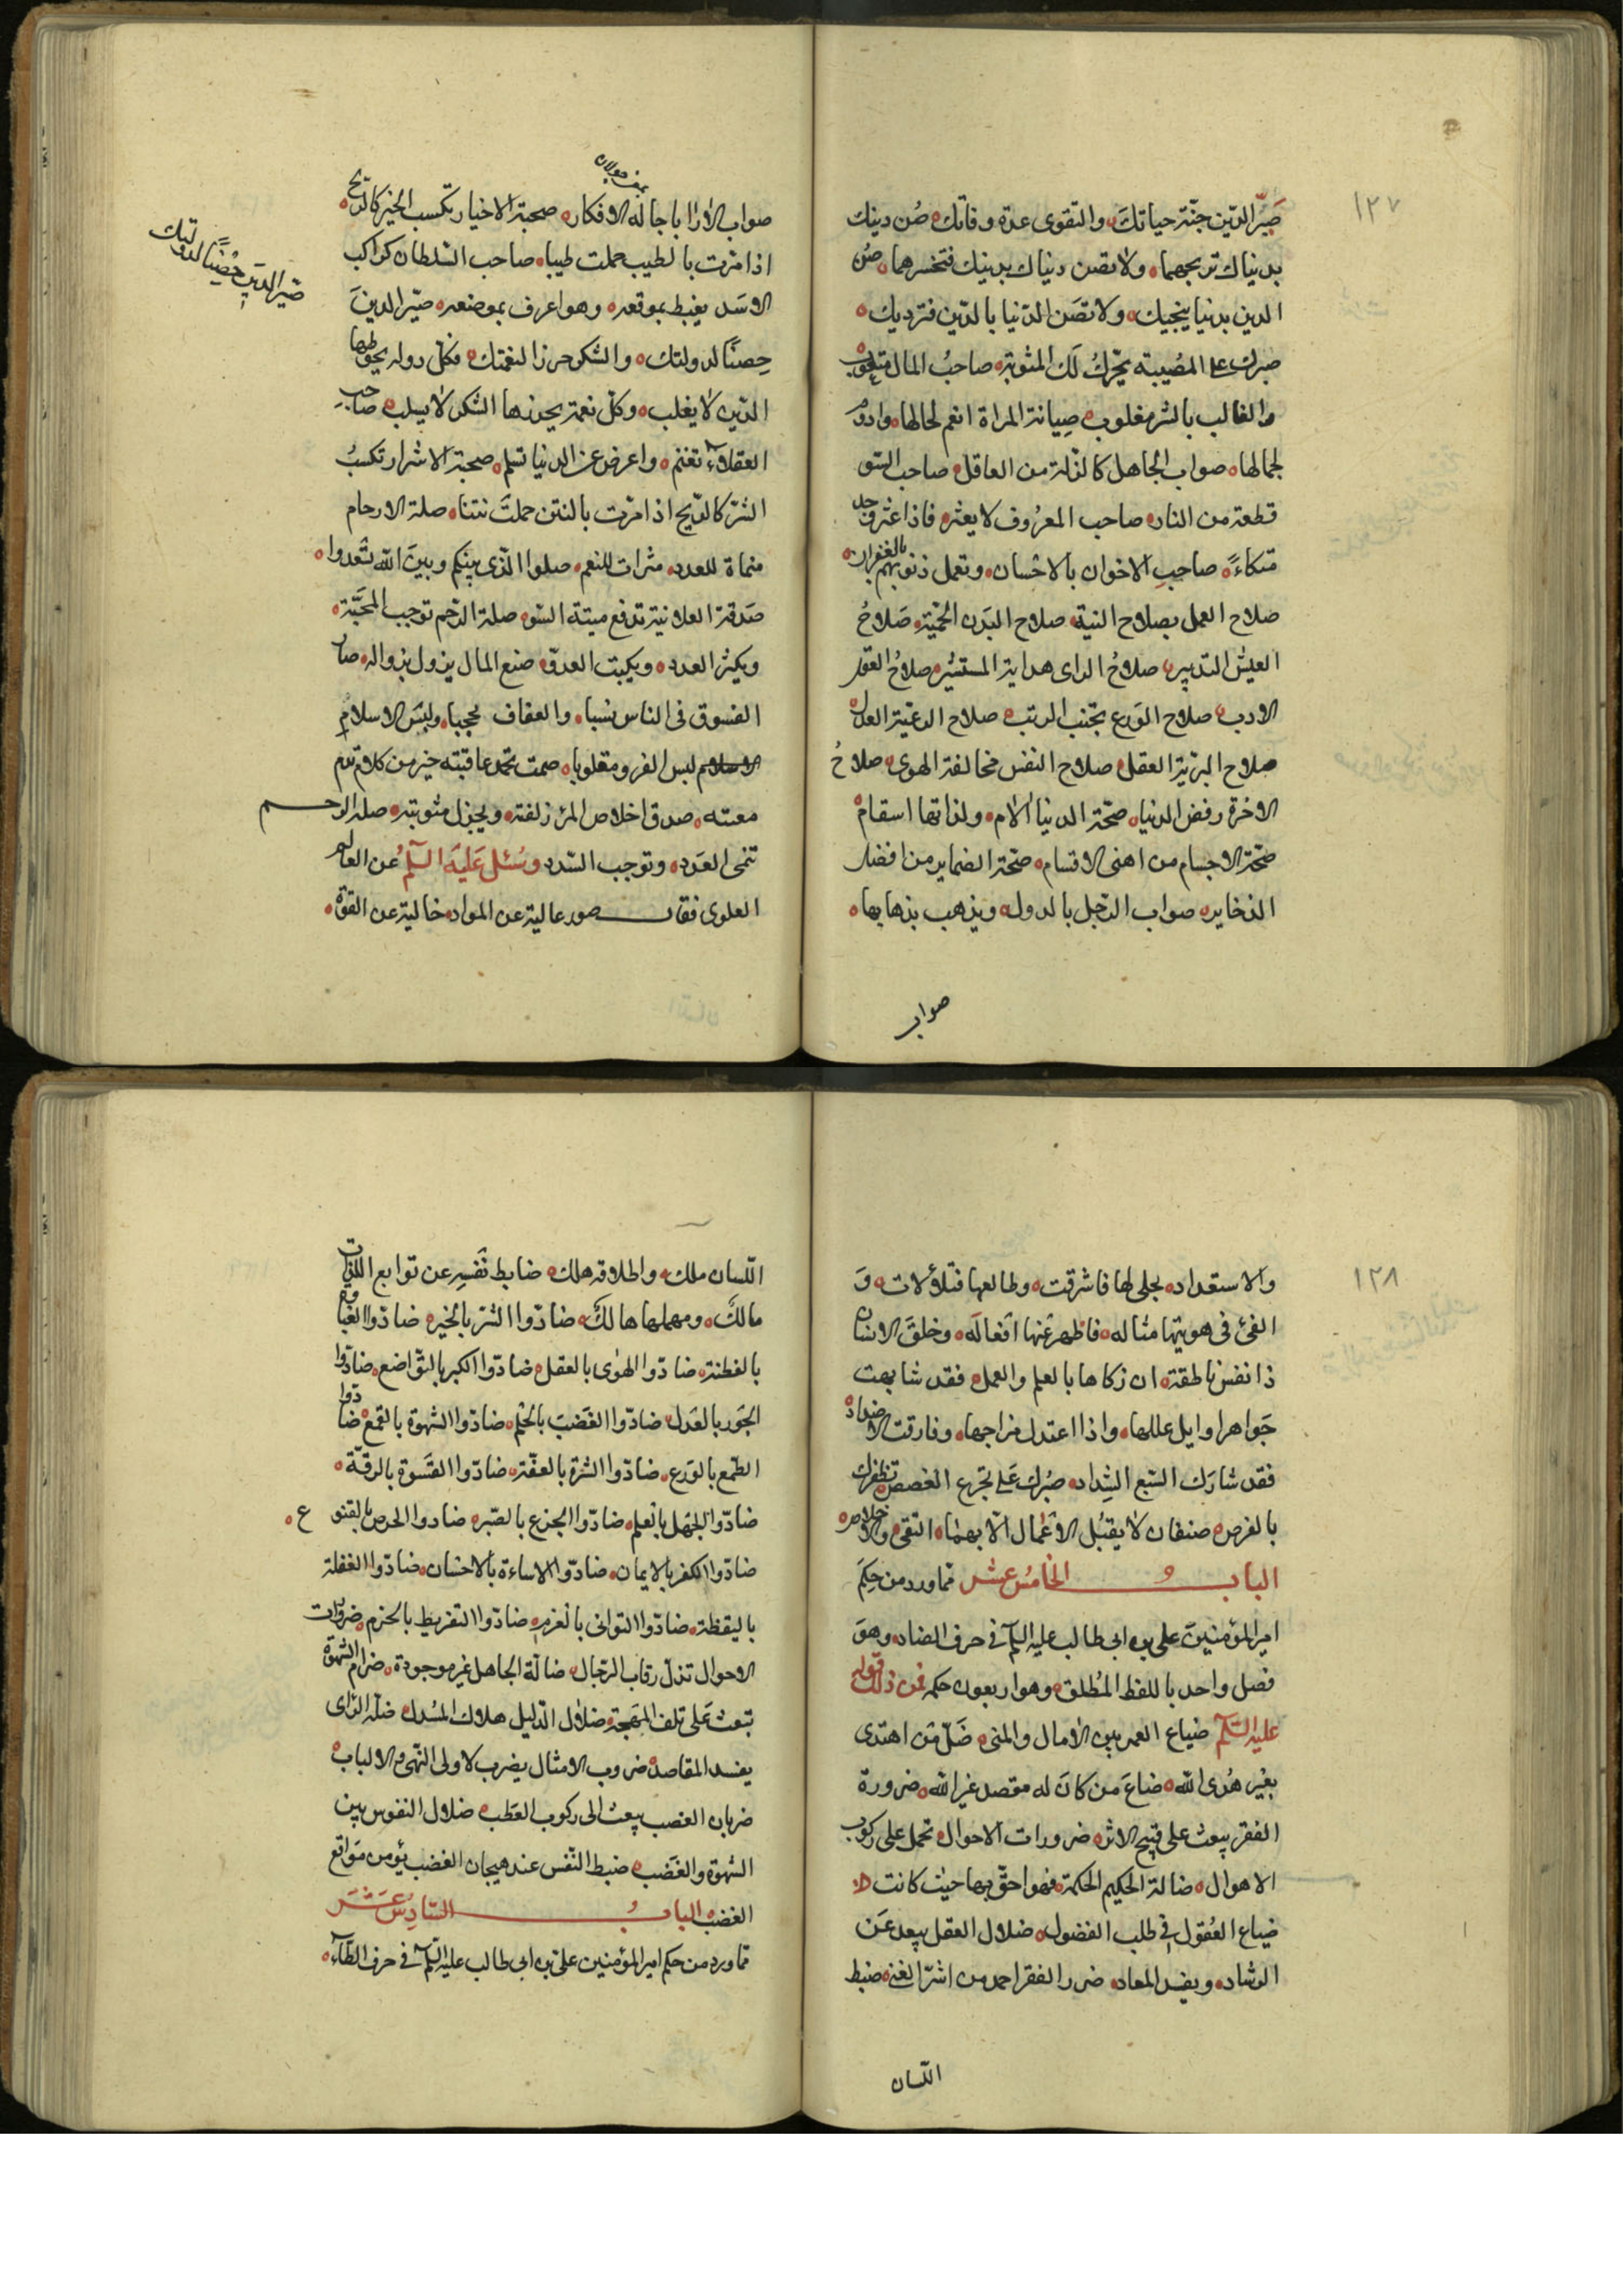 ١٢٧
صَيِّر الدّين جنّة حياتكَ والتقوى عدة وفاتك صُن دينك
بدنياك تربحهما ولا تصن دنياك بدينك فتخسرهما صُن
الدين بدنيا ينجيك ولا تصَن الدّنيا بالدّين فترديك
صبرك على المُصيبة يجزلُ لَك المثوبة صاحبُ المال متعوب
والغالب بالشر مغلوب صِيانة المراة انعم لحالها وادوم
لجمالها صواب الجاهل كالزلة من العاقل صاحب السّو
قطعة من النار صاحب المعرُوف لا يعثر فاذا عثر وجد
متكاءً صاحب الاخوان بالاحْسان وتعمل ذنوبهم بالغفران
صلاح العمل بصلاح النية صلاح البَدن الحميّة صَلاحُ
العيش التدبير صلاحُ الراى هداية المستشير صلاحُ العقل
الادب صلاح الوَرع تجنب الريب صلاح الرعيّة العدل
صلاح البريّة العقل صلاح النفس مخالفة الهوى صلاحُ
الاخرة رفض الدنيا صحّة الدنيا الام ولذاتها اسقام
صحّة الاجسام من اهنى الاقسام صحّة الضماير من افضل
الذخاير صواب الرّجل بالدولة ويذهب بذهابها
صواب
صواب الاراا باجالة الافكار صحبة الاخيار تكسب الخير كالريح
اذا مرّت بالطيب حملت طيبا صاحب السّلطان كراكب
الاسَد يغبط بموقعه وهو اعرف بموضعه صيّر الدينَ
حِصنًا لدولتك والشكر حرزا لنعمتك فكلّ دولة يحوطها
الدّين لا يغلب وكلّ نعمة يحرزها الشكر لا يسلب صاحب
العقلاءَ تغنم واعرض عن الدنيا تسلم صحبة الاشرار تكسبُ
الشرّ كالرّيح اذا مرّت بالنتن حملتَ نتنا صلة الارحام
منماة للعدد مثراة للنعم صلوا الّذى بينكم وبينَ الله تسْعدوا
صَدقة العلانية تدفع ميتة السّو صلة الرّحم توجب المحَبَّة
ويكثر العدد ويكبت العدوّ صنع المال يزول بزواله صار
الفسوق فى الناس نسبا والعفاف عجبا ولبسَ الاسلام
لبس الفرو مقلوبا صمت تحمد عاقبته خير من كلام تذم
مغبته صدق اخلاص المرء زلفته ويجزل مثوبته صلة الرحم
تنمى العَدد وتوجب السّدد وسُئل عَليهَ السّلمُ عن العالم
العلوى فقال صور عالية عن المواد خالية عن القوّة
صيّر الدين حِصْنًا لدولتك
١٢٨
والاستعداد تجلى لها فاشرقت وطالعها فتلؤلات وَ
القىٰ فى هويّتها مثاله فاظهر عَنها افعالَه وخلقَ الانسان
ذا نفس ناطقة ان زكاها بالعلم والعمل فقد شابهت
جَواهر اوايل عللها واذا اعتدل مزاجها وفارقت الاضداد
فقد شارَك السّبع الشِداد صبُرك عَلى تجرع الغصص تظفرك
بالفرص صنفان لا يقبَل الاعْمال الّا بهما التقى والاخلاص
البابُ الخامسُ عشر مما ورد من حِكم
امير المؤمنينَ على بن ابى طالب عليه السّلم فى حرف الضاد وهوَ
فصل واحد باللفظ المُطلق وهو اربعون حكمه فمن ذلك قوله
عليه السّلم ضياع العمر بين الامال والمنى ضَلّ مَن اهتدى
بغير هُدى الله ضاعَ من كانَ له مقصد غير الله ضرورة
الفقر يبعث على قبيح الاثر ضرورات الاحوال تحمل على ركوب
الاهوال ضالة الحكيم الحكمة فهو احقّ بها حيث كانت
ضياع العُقول فى طلب الفضول ضلال العقل يبعد عَن
الرشاد ويفسد المعاد ضرر الفقر احمد من اشر الغنى ضبط
اللّسان
اللّسان ملك واطلاقه هلك ضابط نَفسِه عن توابع اللّذات
مالكُ ومهملها هالكُ ضادّوا الشرّ بالخير ضادّوا الغباوة
بالفطنة ضادّوا الهوٰى بالعقل ضادّوا الكبر بالتّواضع ضادّوا
الجَور بالعَدل ضادّوا الغَضبَ بالحلْم ضادّوا الشهوة بالقمع ضادّوا
الطّمع بالورَع ضادّوا الشرّة بالعفّة ضادّوا القَسَوة بالرقّة
ضادّوا الجَهْل بالعِلم ضادّوا الجزع بالصّبر ضادوا الحرص بالقنوع
ضادّوا الكفر بالايمان ضادّوا الاساءة بالاحسان ضادّوا الغفلة
باليقظة ضادّوا التوانى بالعزم ضادّوا التفريط بالحزم ضرورات
الاحوال تذلّ رقاب الرّجال ضالّة الجاهل غير موجودة ضرام الشهوة
تبعث عَلى تلف المهَجة ضلاٰل الدّليل هلاك المسْدل ضلّة الرّاى
يفسد المقاصد ضروب الامثال يضرب لاولى النّهى والالباب
ضربان الغصب يبعث الى ركوب العَطب ضلال النفوس بين
الشهوَة والغَضب ضبط النّفس عند هيجان الغضب يؤمن موَاقع
الغضب البابُ السّادِسُ عَشَر
مما ورد من حكم امير المؤمنين علىّ بن ابى طالب عليه السّلم فى حرف الطّآء